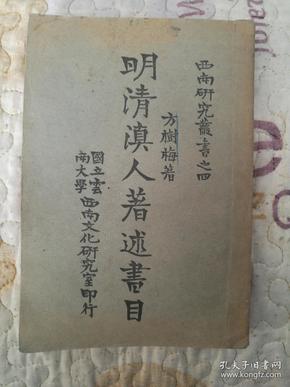 西南研究叢書之四
明清滇人著述書目
方樹梅著
國立雲南大學西南文化研究室印行
孔夫子旧书网